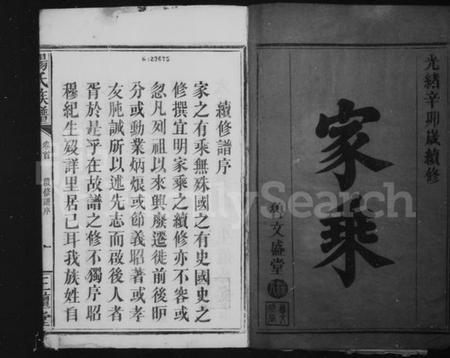 光緒辛卯歲續修
家乘
文盛堂
續修譜序
家之有乘無殊國之有史國史之
修撰宜明家乘之續修亦不容或
忽凡列祖以來興廢遷徙前後昈
分或動業炳烺或節義昭著或孝
友肫誠所以述先志而啟後人者
胥於是乎在故譜之修不獨序昭
穆紀生𣦸詳里居已耳我族姓自
氏族譜
卷首
續修譜序
一
堂
FamilySearch